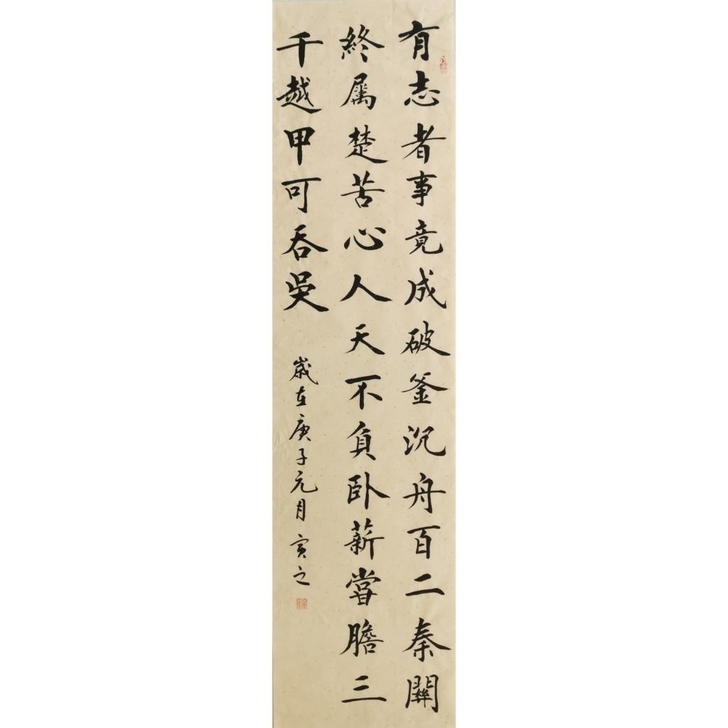 有志者事竟成破釜沉舟百二秦關
終属楚苦心人天不負卧薪嘗膽三
千越甲可吞吳
歲在庚子元月寅之